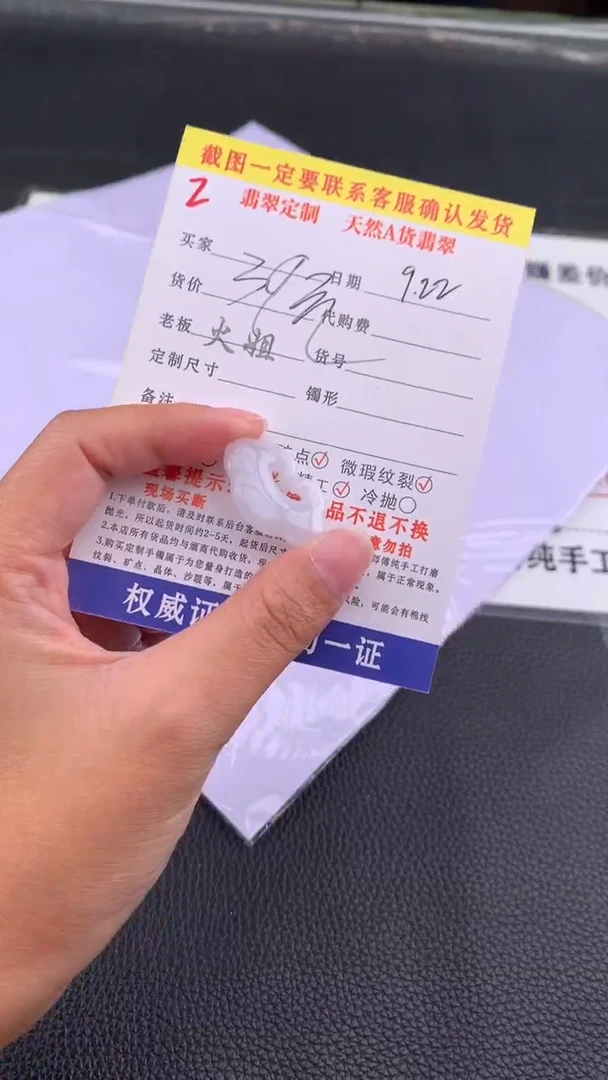 截图一定要联系客服确认发货
2 翡翠定制 天然A货翡翠
买家 日期 9.22
货价 代购费
老板 火姐 货号
定制尺寸 镯形
备注
点 微瑕纹裂
精工 冷抛
提示:
现场买断
品不退不换
意勿拍
1.下单付款后，请及时联系后台客服
师傅纯手工打磨
抛光，所以起货时间约2~5天，起货后尺寸
，属于正常现象。
2.本店所有货品均与缅商代购收货，现
3.购买定制手镯属于为您量身打造的
风险，可能会有棉线
纹裂、矿点、晶体、沙眼等，属于
权威证
一证
纯手工